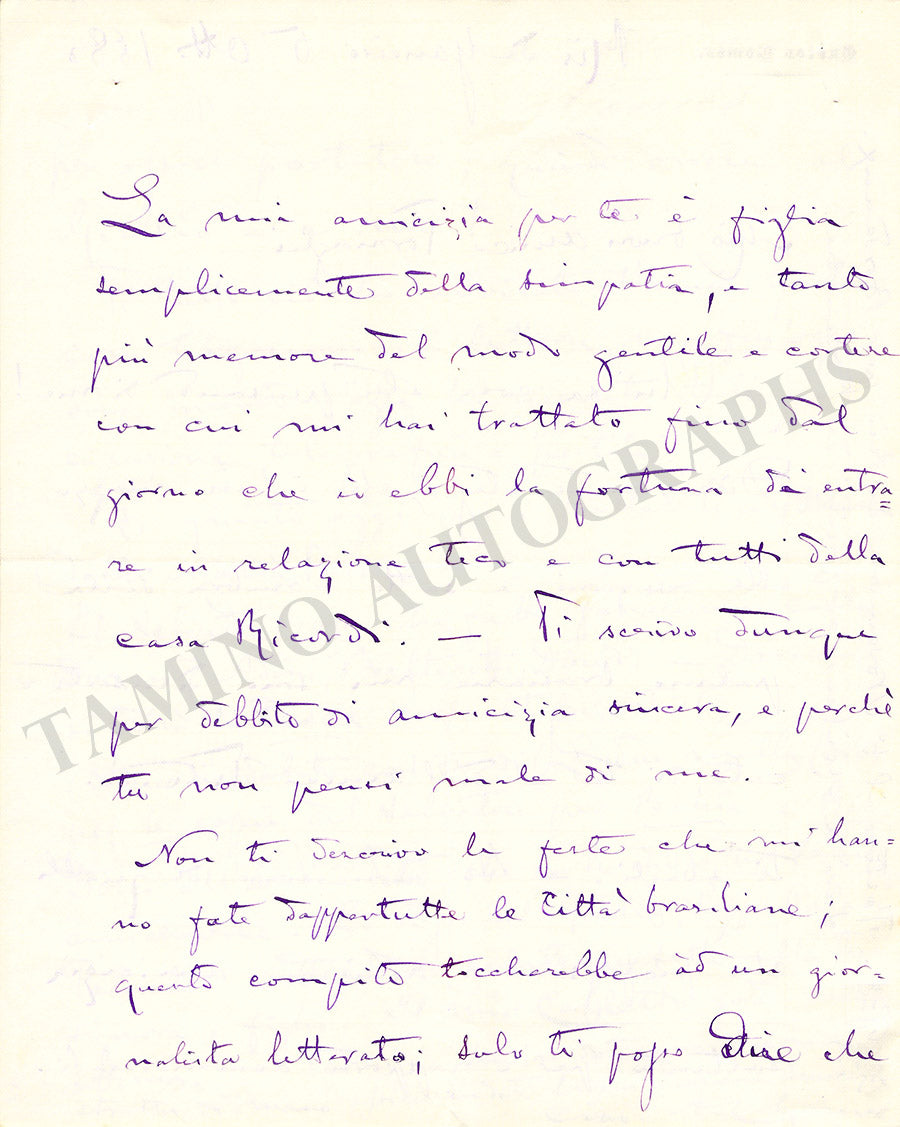 La mia amicizia per te è figlia
semplicemente della simpatia, e tanto
più memore del modo gentile e cortese
con cui mi hai trattato fino dal
giorno che io ebbi la fortuna di entra=
re in relazione teco e con tutti della
casa Ricordi. — Ti scrivo dunque
per debbito di amicizia sincera, e perchè
tu non pensi male di me.
Non ti descrivo le feste che mi han=
no fate dappertutte le Città brasiliane;
questo compito toccherebbe ad un gior=
nalista letterato; solo ti posso dire che
TAMINO AUTOGRAPHS